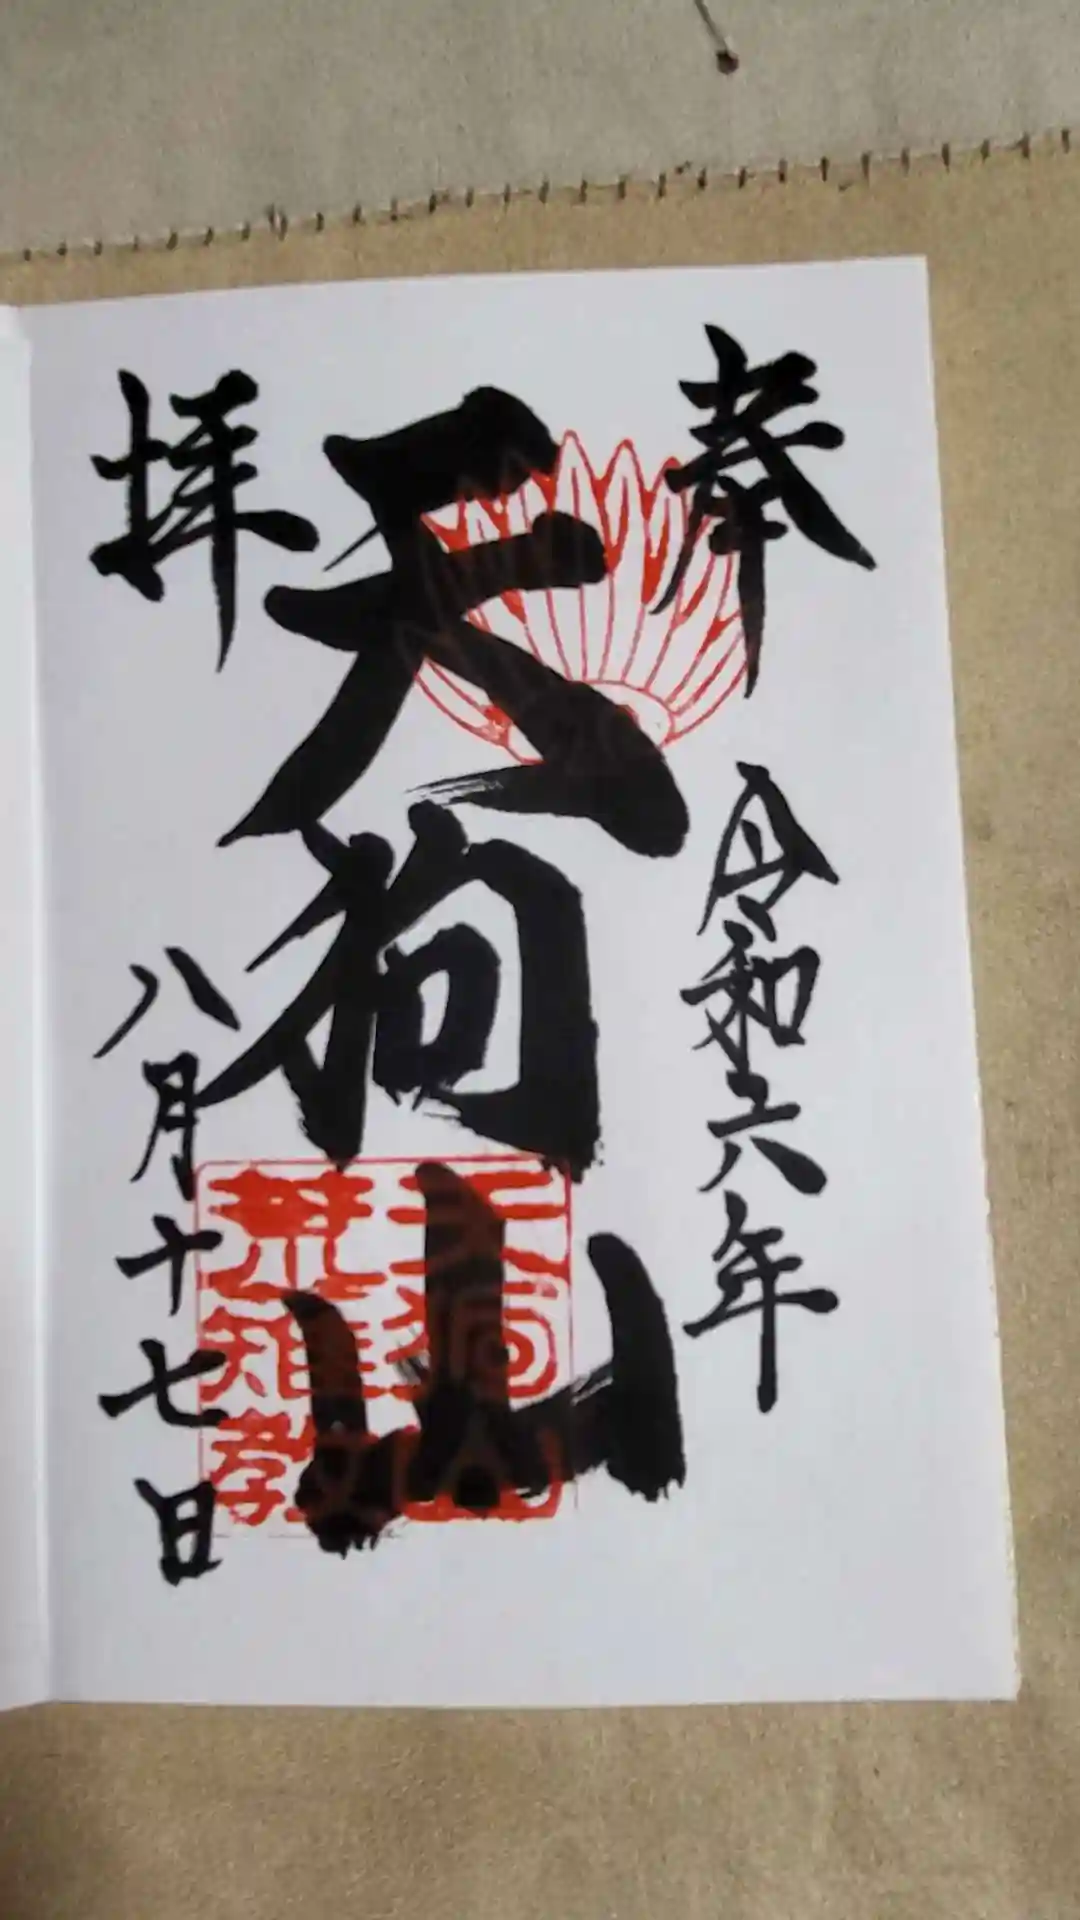 奉
令和六年
天狗山
拝
八月十七日
天狗山
荒雄教